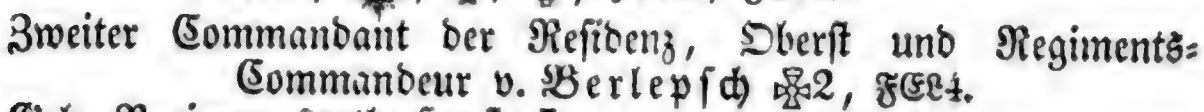 Zweiter Commandant der Residenz, Oberst und Regiments-
Commandeur v. Berlepsch ✠2, FEL4.